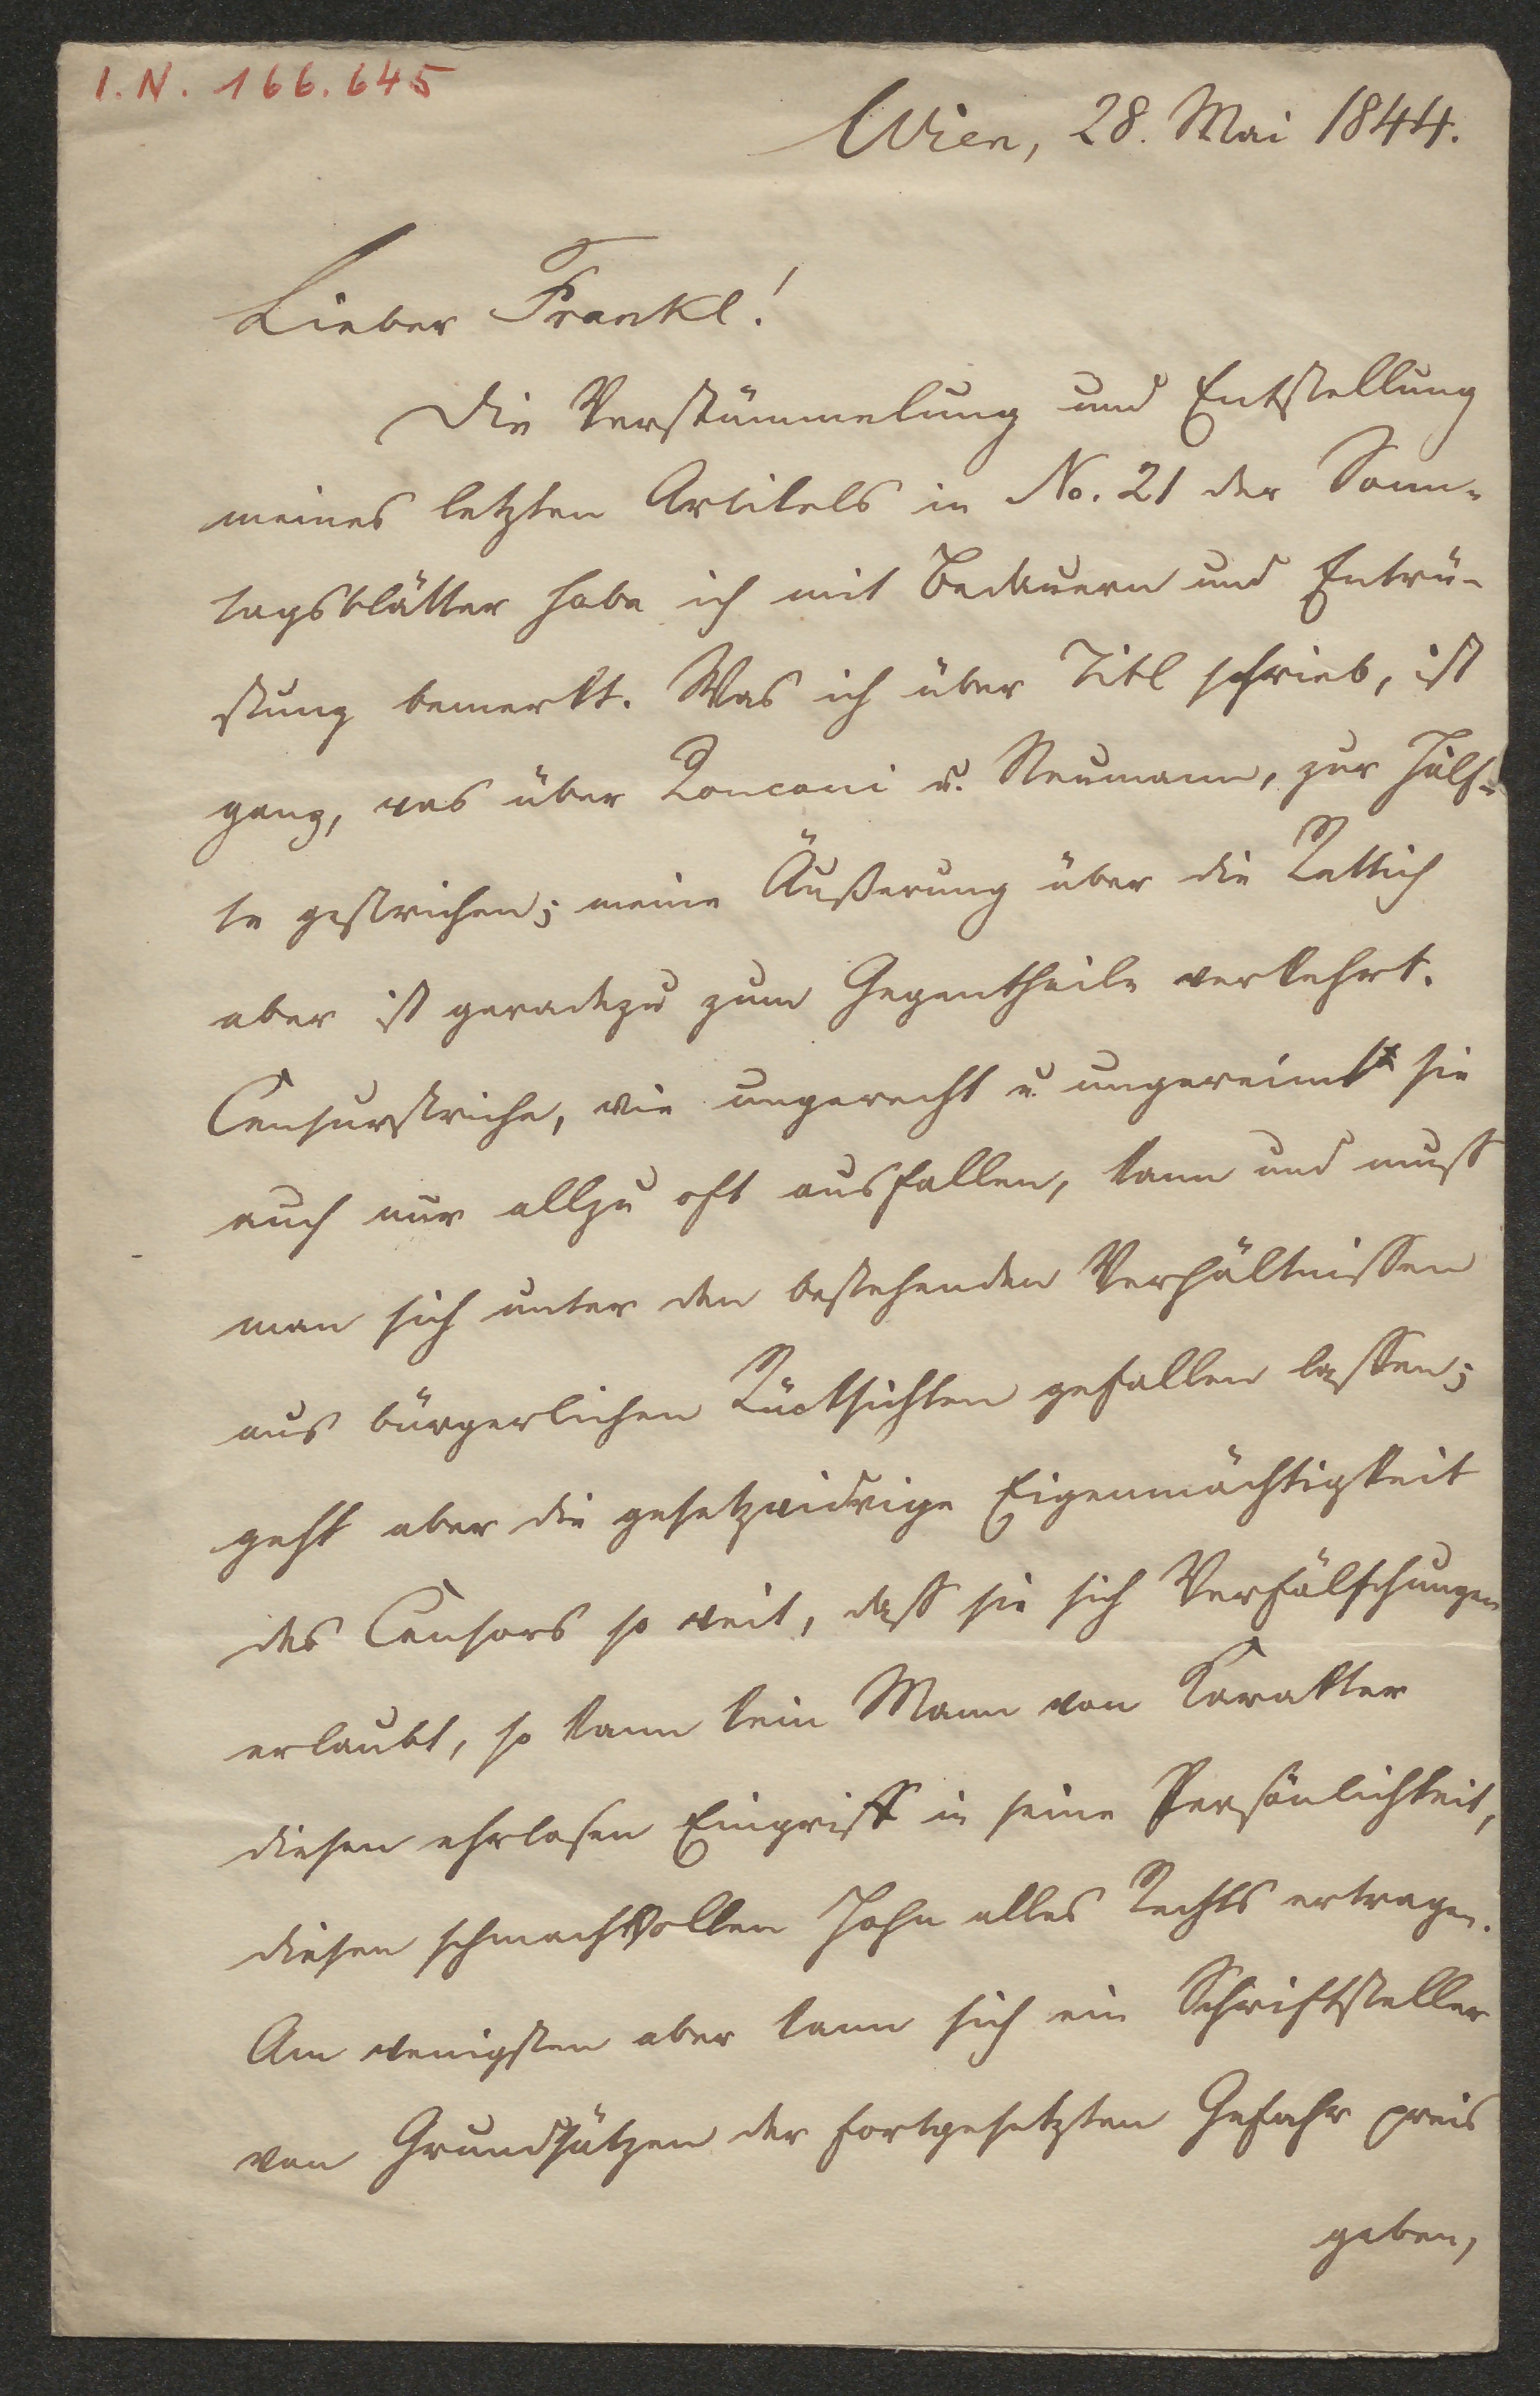 I.N. 166.645
Wien, 28. Mai 1844.
Lieber Frankl!
Die Verstümmelung und Entstellung
meines letzten Artikels in No. 21 der Sonn-
tagsblätter habe ich mit Bedauern und Entrü-
stung bemerkt. Was ich über Titl schrieb, ist
ganz, was über Ronconi u. Neumann, zur Hälf-
te gestrichen; meine Äußerung über die Rettich
aber ist geradezu zum Gegentheile verkehrt.
Censurstriche, wie ungerecht u. ungereimt sie
auch nur allzu oft ausfallen, kann und muß
man sich unter den bestehenden Verhältnissen
aus bürgerlichen Rücksichten gefallen lassen;
geht aber die gesetzwidrige Eigenmächtigkeit
des Censors so weit, daß sie sich Verfälschungen
erlaubt, so kann kein Mann von Karakter
diesen ehrlosen Eingriff in seine Persönlichkeit,
diesen schmachvollen Hohn alles Rechts ertragen.
Am wenigsten aber kann sich ein Schriftsteller
von Grundsätzen der fortgesetzten Gefahr preis
geben,